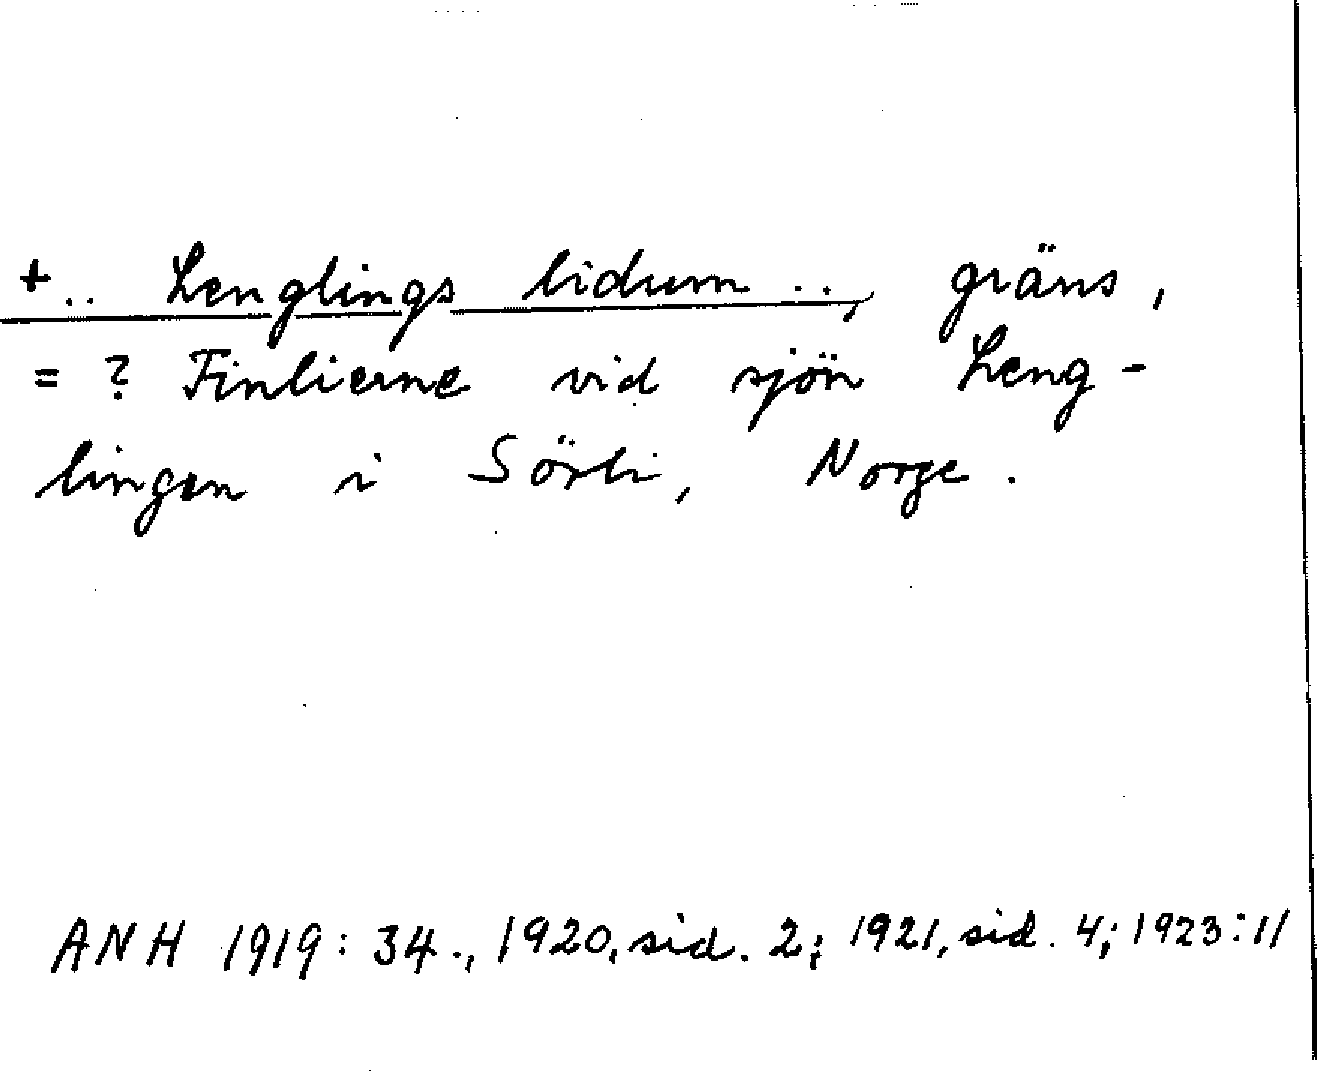 +.. Lenglings lidum .., gräns,
= ? Finlierne vid sjön Leng-
lingen i Sörli, Norge.
ANH 1919: 34., 1920, sid. 2; 1921, sid. 4; 1923:11